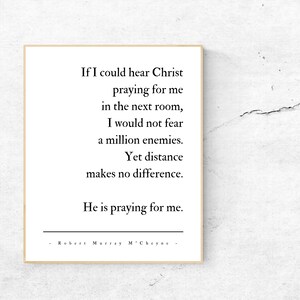 If I could hear Christ
praying for me
in the next room,
I would not fear
a million enemies.
Yet distance
makes no difference.
He is praying for me.
- Robert Murray M'Cheyne -